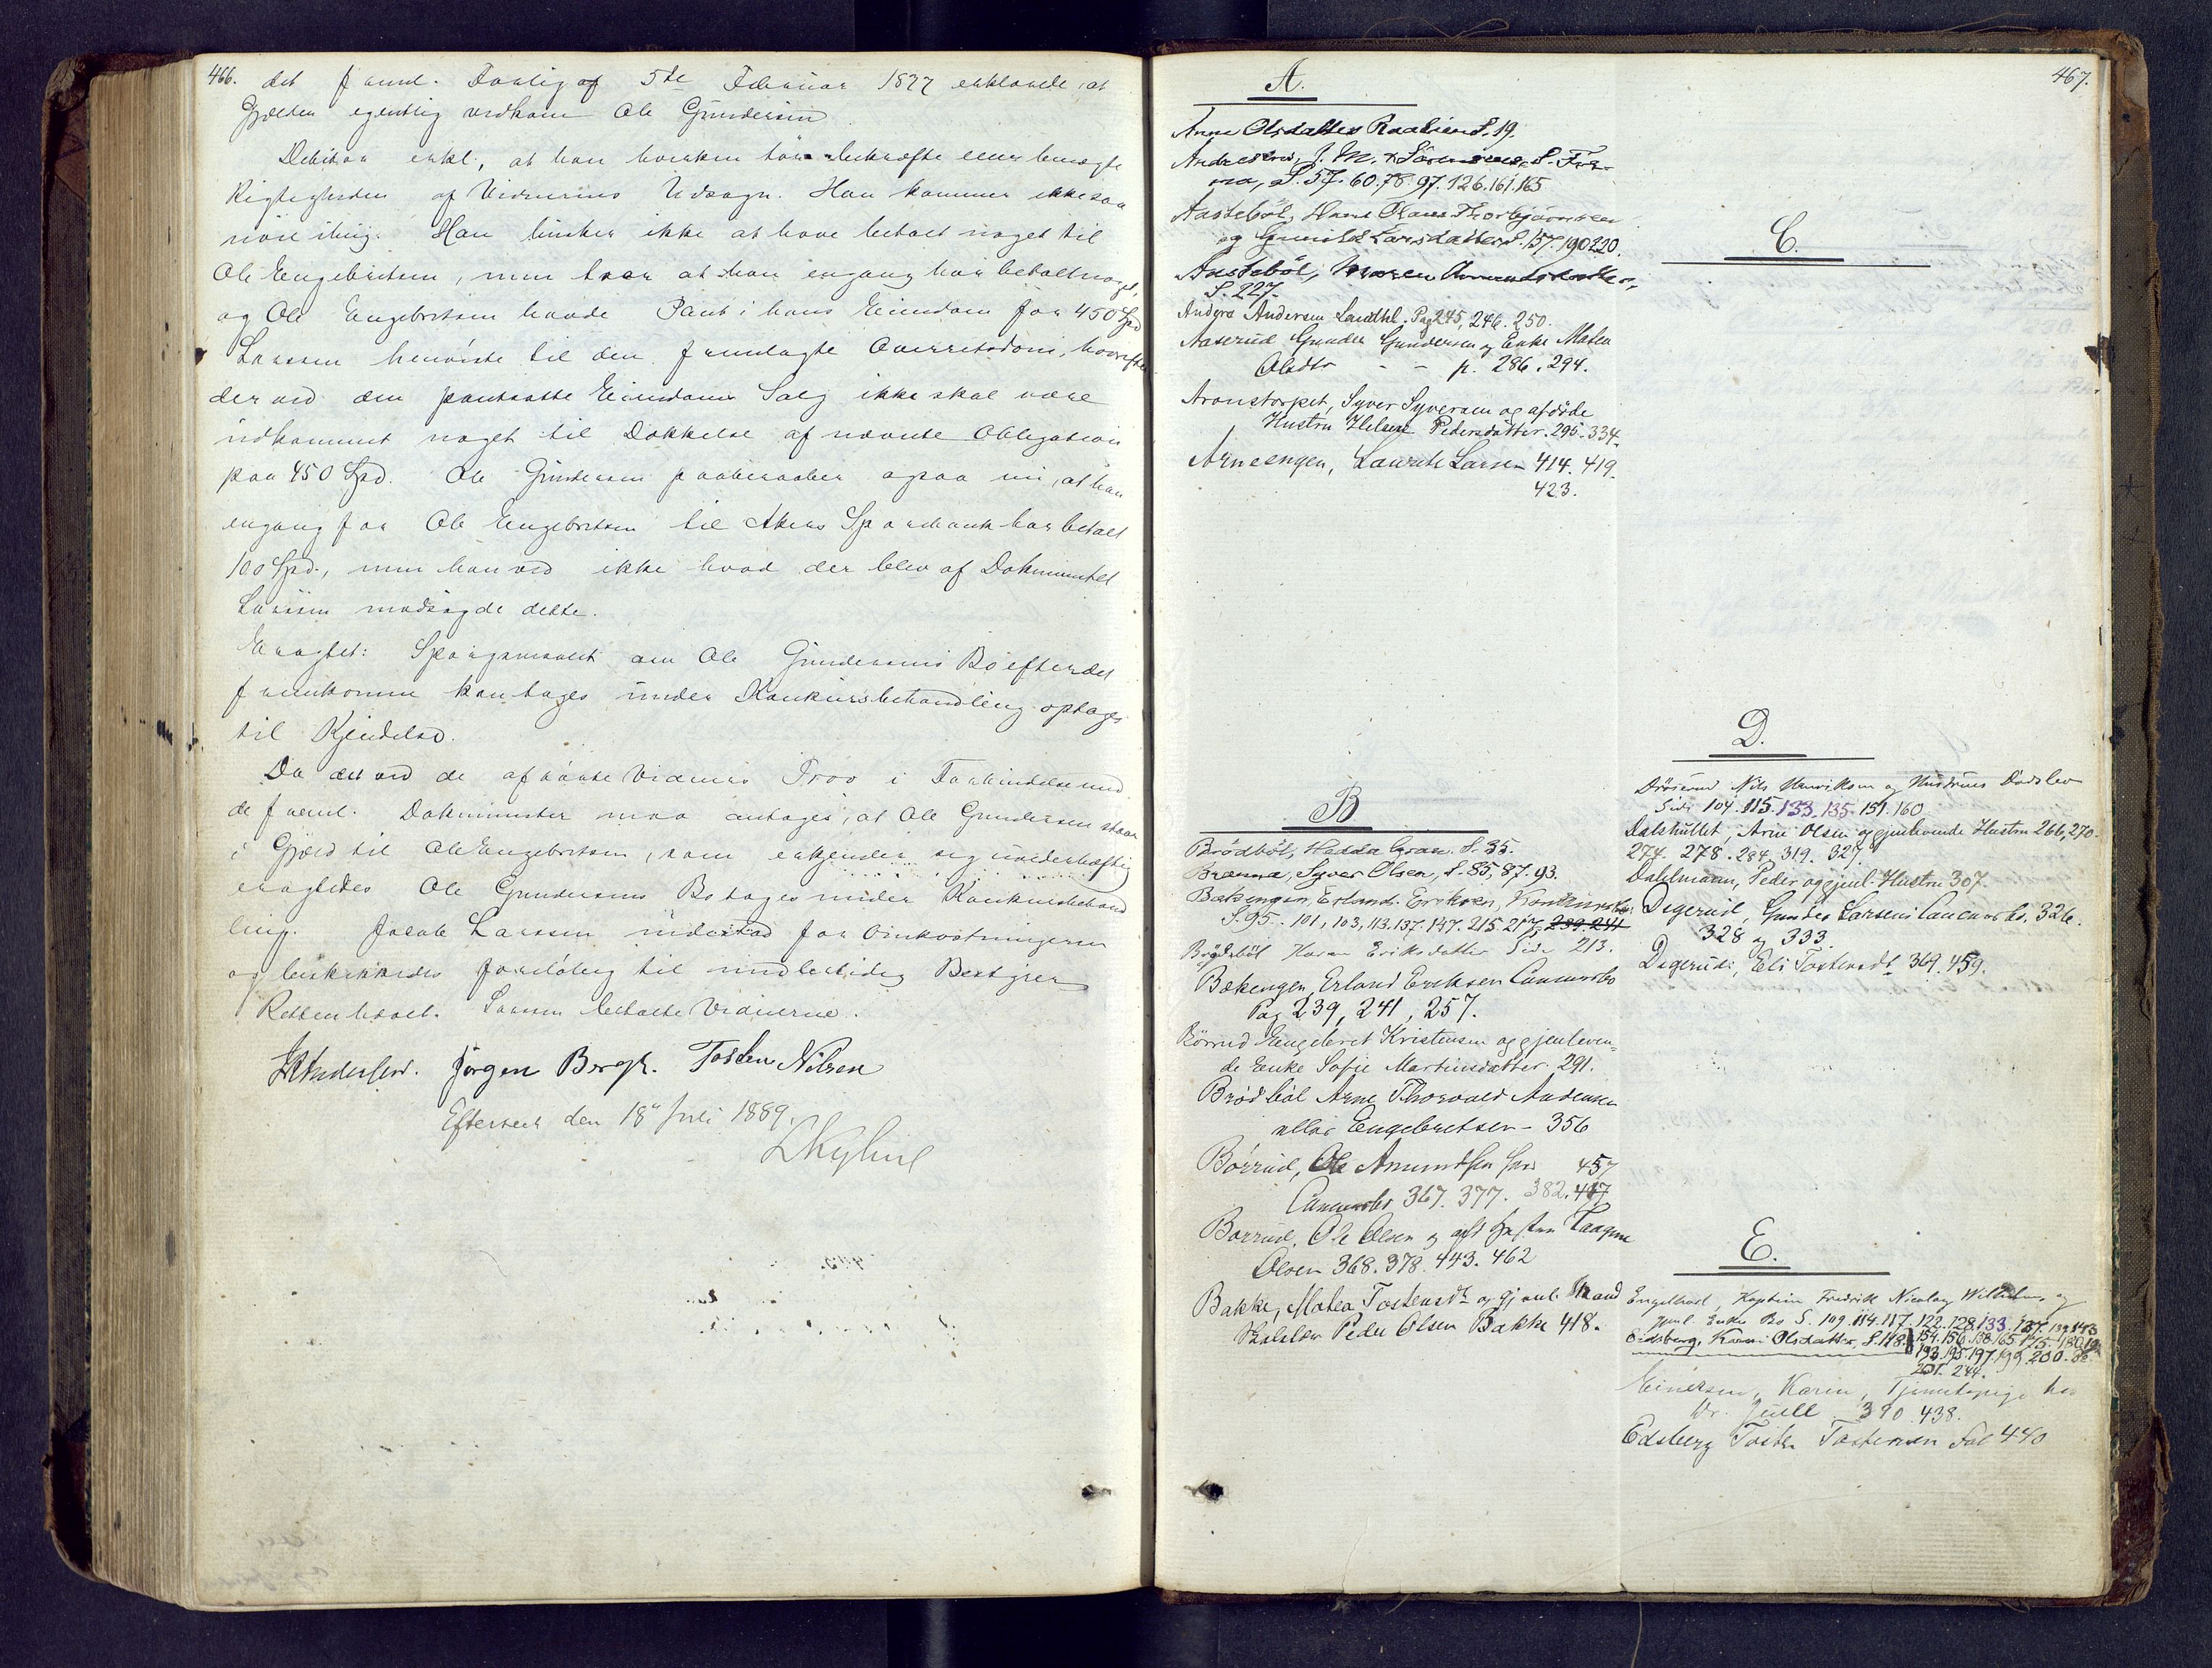 466.
det freml. Forlig af 5te Februar 1877 erklærede, at
Gjælden egentlig vedkom Ole Gundersen
Debitor erkl., at han hverken tør bekræfte eller benægte
Rigtigheden af Vidnernes Udsagn. Han kommer ikke saa
nöie ihug. Han husker ikke at have betalt noget til
Ole Engebretsen, men tror at han engang har betalt noget,
og Ole Engebretsen havde Pant i hans Eiendom for 450 Spd
Larsen henviste til den fremlagte Overretsdom, hvorefter
der ved den pantsatte Eiendoms Salg ikke skal være
udkommet noget til Dækkelse af nævnte Obligation
paa 450 Spd. Ole Gundersen paaberaaber ogsaa nu, at han
engang for Ole Engebretsen til Akers Sparebank har betalt
100 Spd., men han ved ikke hvad der blev af Dokumentet
Larsen modsagde dette.
Eragtet: Spørgsmaalet om Ole Gundersens Bo efter det
fremkomne kan tages under Konkursbehandling optages
til Kjendelse.
Da det ved de afhørte Vidners Prov i Forbindelse med
de freml. Dokumenter maa antages, at Ole Gundersen staar
i Gjæld til Ole Engebretsen, som erkjender sig uvederhæftig
eragtedes Ole Gundersens Bo tages under Konkursbehand
ling. Jacob Larsen indestod for Omkostningerne
og beskikkedes foreløbig til midlertidig Bestyrer
Retten hævet. Larsen betalte Vidnerne.
Jörgen Bergh. Tosten Nilsen
Efterseet den 18de Juli 1889.
467.
A.
Anne Olsdatter Raalien S. 19.
S. 57. 60. 78. 97. 126. 161. 165
Aastebøl, Hans Olaus Thorbjörnsen
og Gunild Larsdatter S. 157. 190 220.
Aastebøl, Maren Amundsdatter,
S. 227.
Anders Andersen Pag 245, 246. 250.
Aaserud Gunder Gundersen og Enke Mathea
Olsdtr - - p. 286. 294.
Aronstorpet, Syver Syversen og afdöde
Hustru Helene Pedersdatter. 295. 334.
Arneengen, Laurits Larsen 414. 419.
423.
B
Brödböl, Hedda Gran. S. 35.
Branna, Syver Olsen, S. 85, 87. 93.
Bækengen, Erland Eriksen, Konkursbo
S. 95. 101, 103, 113. 137. 147. 215. 217, 239. 241
Brødsböl Karen Eriksdatter Side 213.
Bækengen, Erland Eriksen Concursbo
Pag 239, 241, 257.
Börrud Engebret Kristensen og gjenleven=
de Enke Sofie Martinsdatter. 291.
Brödböl Arne Thorvald Andersen
eller Engebretsen - 356
Börrud, Ole Amundsen 457
Concursbo 367. 377. 382. 417
Borrud, Ole Olsen og afd Hustru
Olsen 368. 378. 443. 462
Bakke, Mathea Tostensdtr og gjenl. Mand
Peder Olsen Bakke 418.
C.
D.
Nils Henriksen og Hustrues Dødsbo
Side 104. 115. 133. 135. 151. 160
Dalshullet, Arne Olsen og gjenlevende Hustru 266, 270.
274. 278. 284. 319. 327.
Dahlmann, Peder og gjenl. Hustru 307.
Degerud, Gunder Larsens Concursbo. 326.
328 og 333.
Degerud, Eli Tostensdt 369. 459.
E.
Engelhart, Kaptein Fredrik Nicolay Wilhelm, og
gjenl. Enkes Bo S. 109. 114. 117. 122. 128. 133. 137. 139. 143
Eidsberg, Karen Olsdatter, S. 148. 154. 156. 158. 165. 175. 180
193. 195. 197. 199. 200.
201. 244.
Einersen, Karen, Tjenestepige hos
Dr. Juell 390. 438.
Edsberg Tosten Tostensen Fol 440